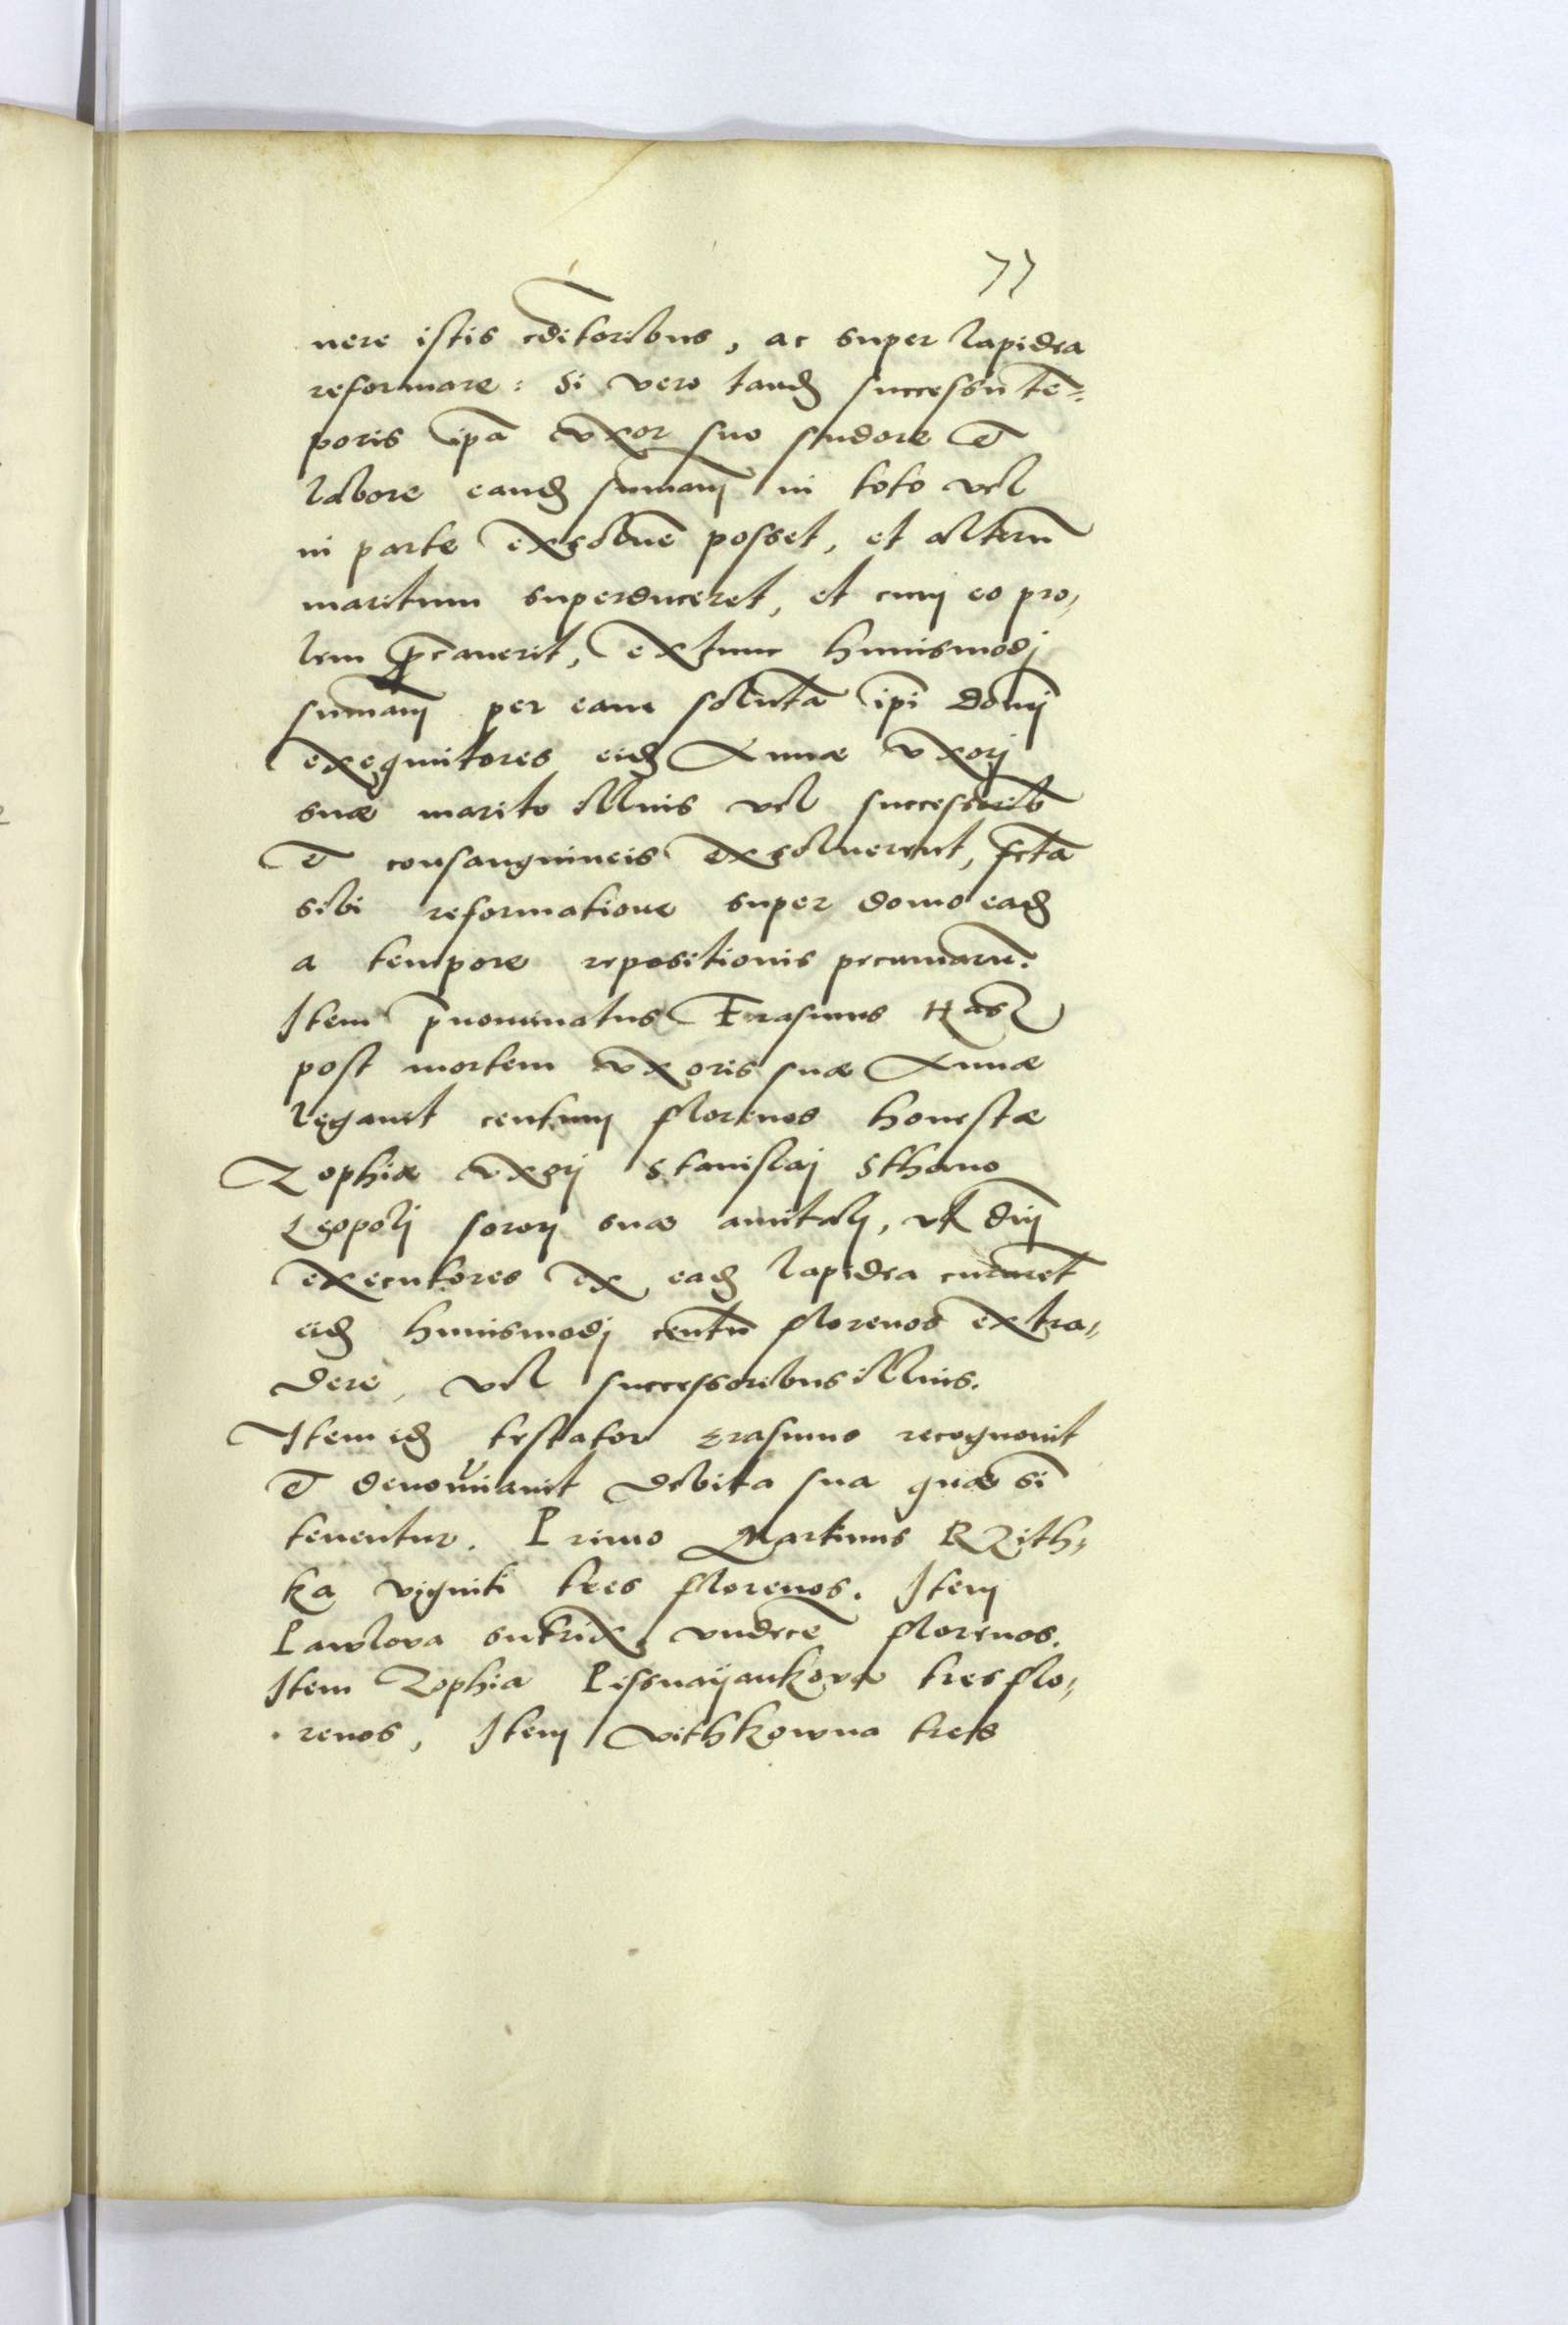 77
nere istis cditoribus, ac super lapidea
reformare: Si vero tandē successu tē-
poris ipā vxor suo sudore et
labore eandē sum̄am in toto vel
in parte exsoluē posset, et alterū
maritum superduceret, et cum eo pro,
lem p̄careuit, extunc huiusmodj
sum̄am per eam solutā ip̄i Domj
exequitores eidē Annæ vxorj
suæ marito illius vel successorib
et consanguineis exsoluerent, fctā
sibi reformatione super domo eadē
a tempore repositionis pecuniarū.
Item p̄nominatus Erasmus
post mortem vxoris suæ Annæ
legauit centum florenos honestæ
Zophiæ vxorj Stanislaj
Leopolj sororj suæ amitalj, vt dnj
executores ex eadē lapidea curaret
eidē huiusmodj centū florenos extra,
dere, vel successoribus illius.
Item idē testator Erasmus recognouit
et denominauit debita sua quæ si
tenentur. Primo Martinus Rzith,
ka viginti tres florenos. Item
Pawlowa sutrix vndecē florenos.
Item Zophia Pissnaÿankowa tres flo,
renos, Item vithkowna tres